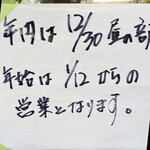 年内は12/30昼の部
年始は1/12からの
営業となります。